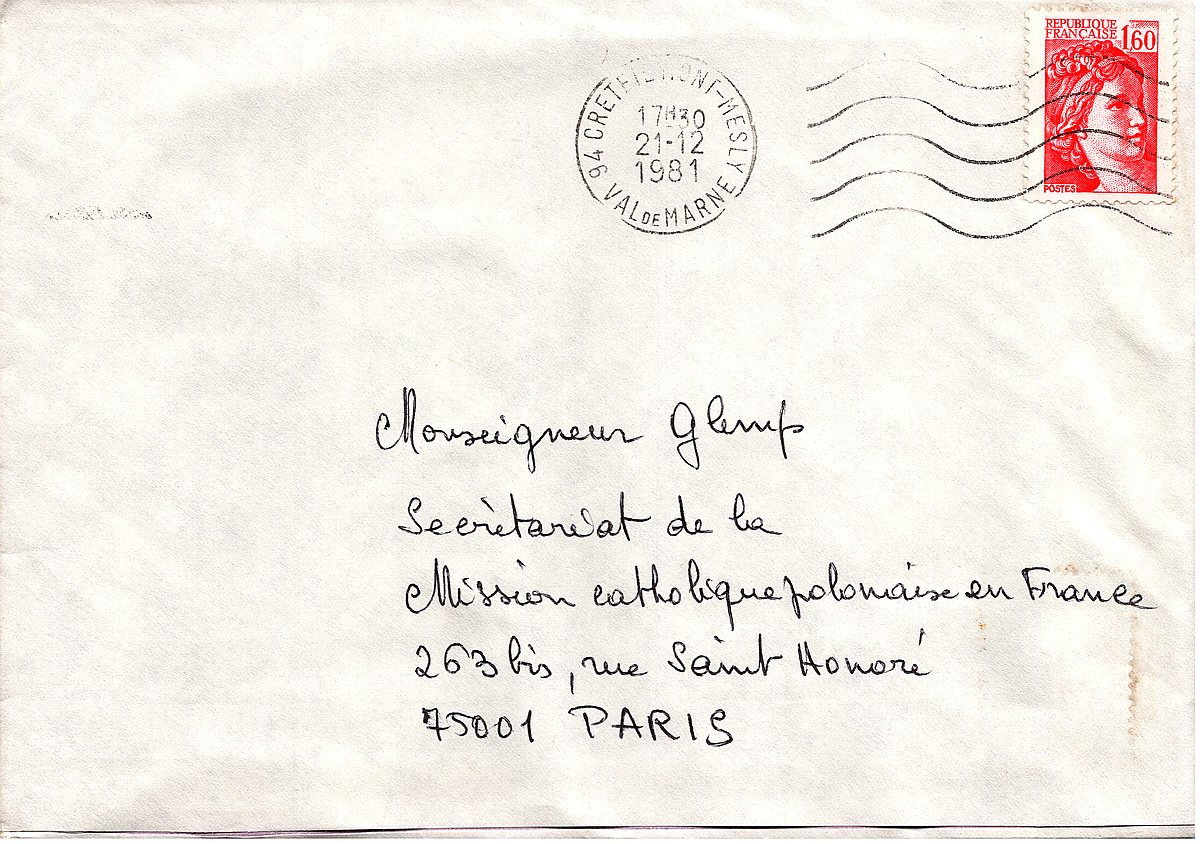 REPUBLIQUE
FRANÇAISE
1,60
POSTES
94 CRETEIL MONT-MESLY
17H30
21-12
1981
VAL DE MARNE
Monseigneur Glemp
Secrètariat de la
Mission catholique polonaise en France
263 bis, rue Saint Honoré
75001 PARIS